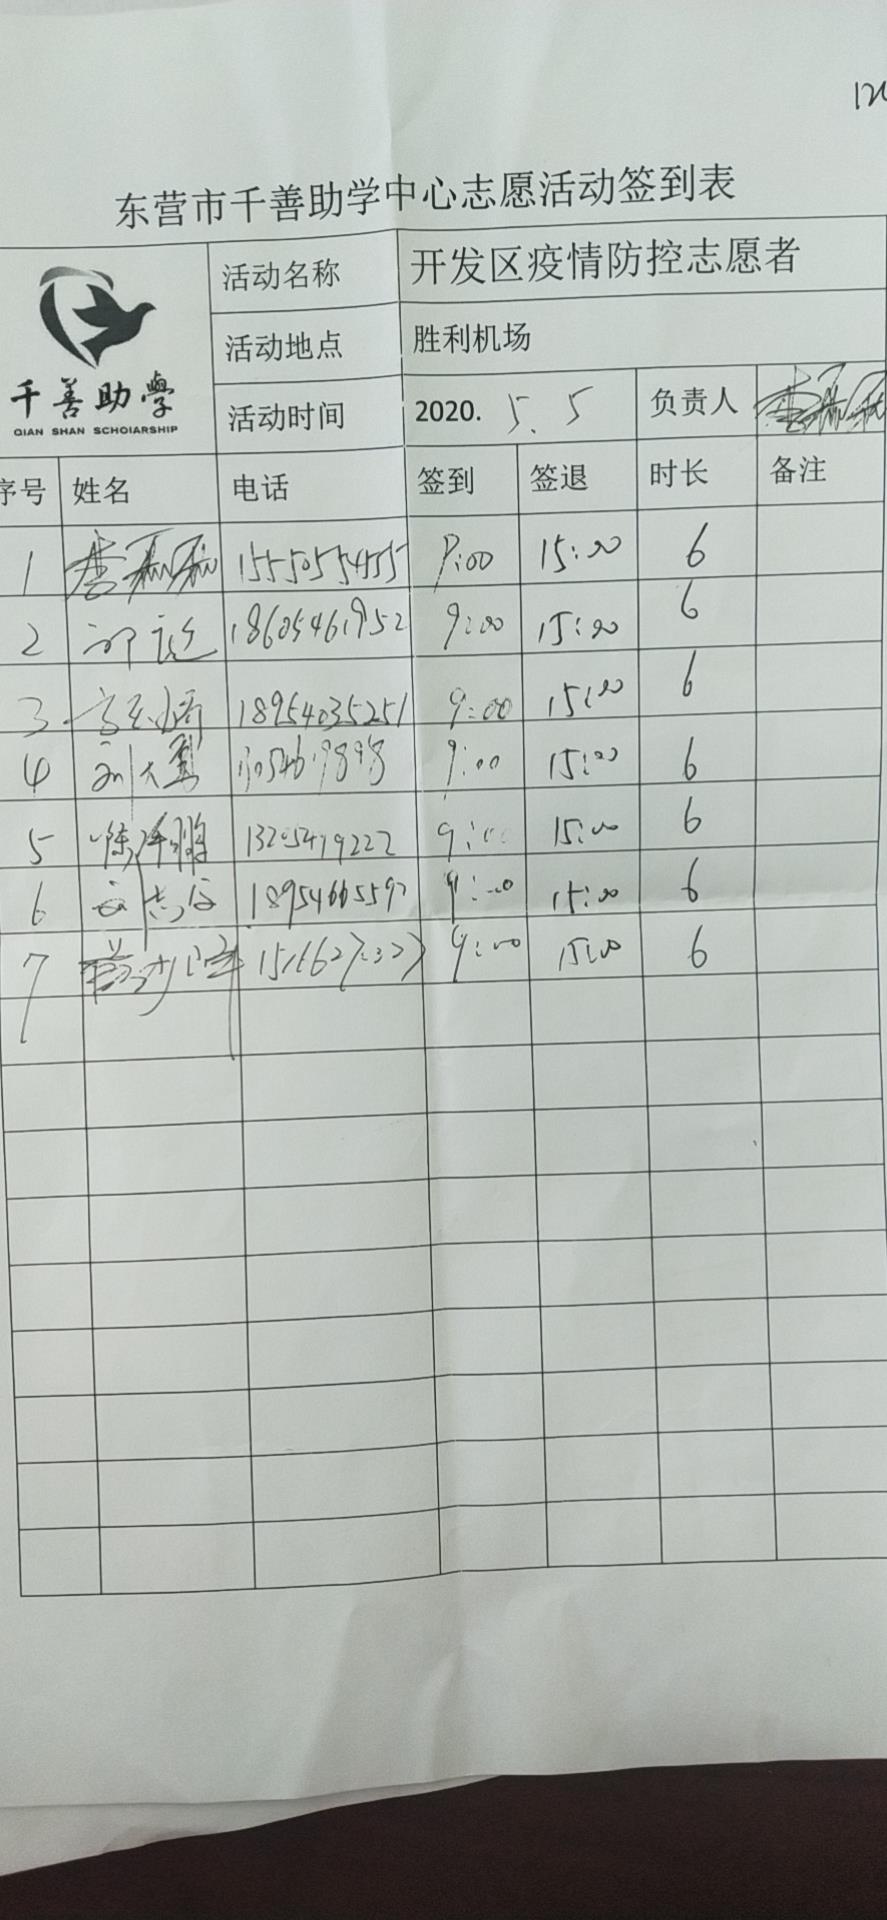 12
东营市千善助学中心志愿活动签到表
千善助學
QIAN SHAN SCHOIARSHIP
活动名称 开发区疫情防控志愿者
活动地点 胜利机场
活动时间 2020. 5.5 负责人
序号 姓名 电话 签到 签退 时长 备注
1 15550554555 9:00 15:00 6
2 18605461952 9:00 15:00 6
3 18954035251 9:00 15:00 6
4 刘大勇 9:00 15:00 6
5 13205479222 9:00 15:00 6
6 18954665597 9:00 15:00 6
7 9:00 15:00 6